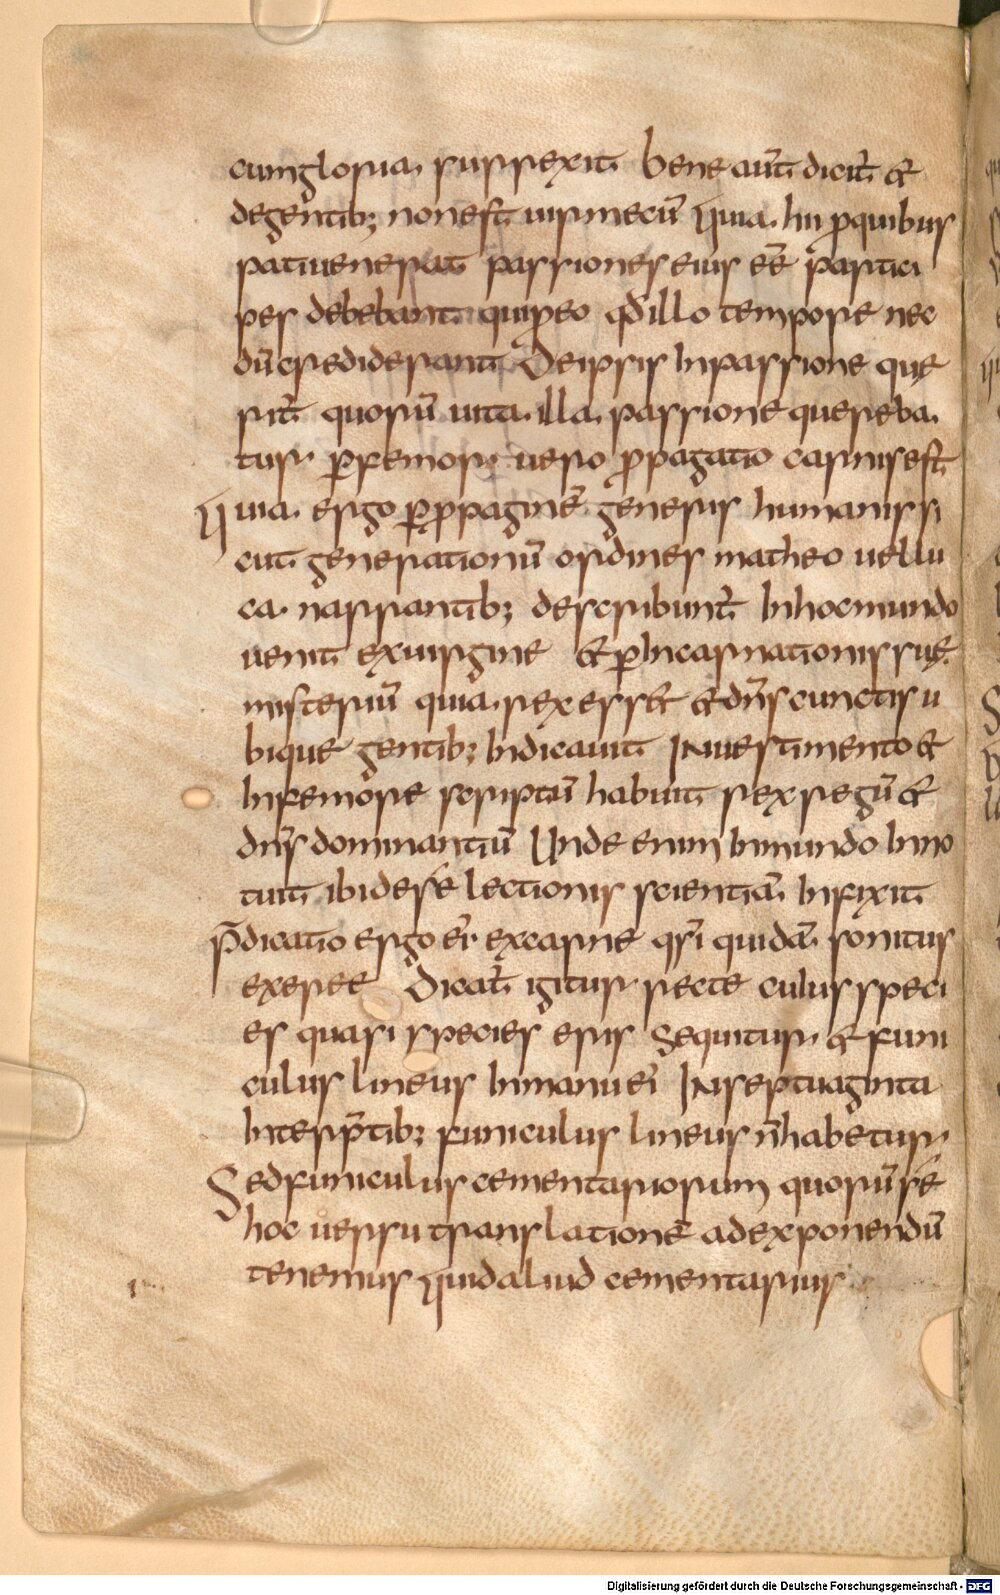 cumgloria. surrexit Bene aut̄ dicit̄ &
degentib; nonest uirmecū Quia. hii ꝓquibus
patiuenerat passiones eius eē̄ partici
pes debebant. quiꝓeo qđillo tempore nec
dū crediderant Deipsis Inpassione que
rit̄ quorū uita. illa. passione querereba.
tur ꝑfemory uero ꝓpagatio carnis est
Quia. ergo ꝑꝓpaginē generis humanis si
cut generationū ordines matheo uellu
ca. narrantib; describunt̄ Inhocmundo
uenit exuirgine & ꝑIncarnationis suę
misteriū quia. rex ess& & dn̄s cunctis u
bique gentib; Indicauit INuestimento &
Infemore scriptū habuit rex regū &
dn̄s dominantiū Unde enim Inmundo Inno
tuit ibidesśe lectionis scientiā. Infixit
p̄dicatio ergo ei' excarne qsi quidā. sonitus
exaere Dicat̄ igitur recte cuius speci
es quasi species eris Sequitur & funi
culus lineus Inmanuei' INseptuaginta
Interp̄tib; funiculus lineus n̄habetur
Sedfuniculus cementariorum quorū śe
hoc uersu translationē adexponendū
tenemus Quidaliud cementarius
Digitalisierung gefördert durch die Deutsche Forschungsgemeinschaft - DFG